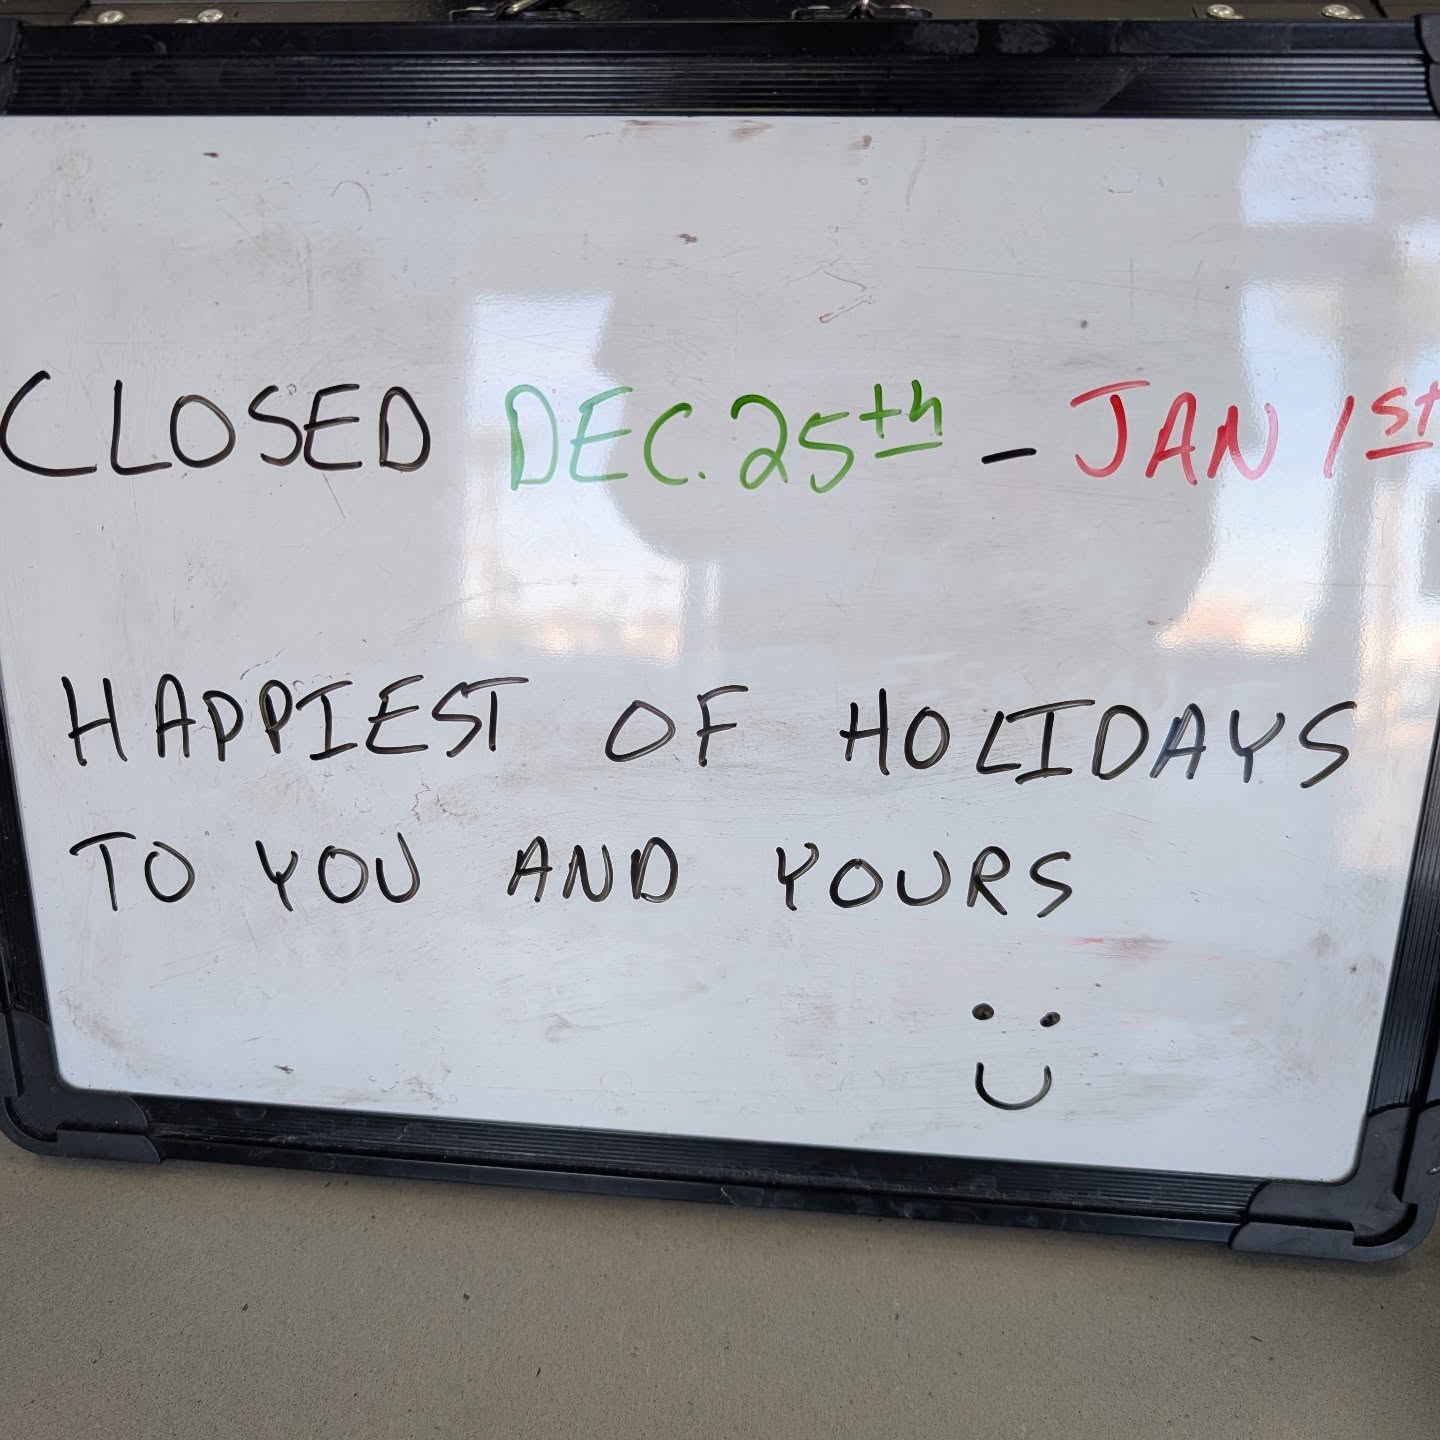 CLOSED DEC. 25th - JAN 1st
HAPPIEST OF HOLIDAYS
TO YOU AND YOURS